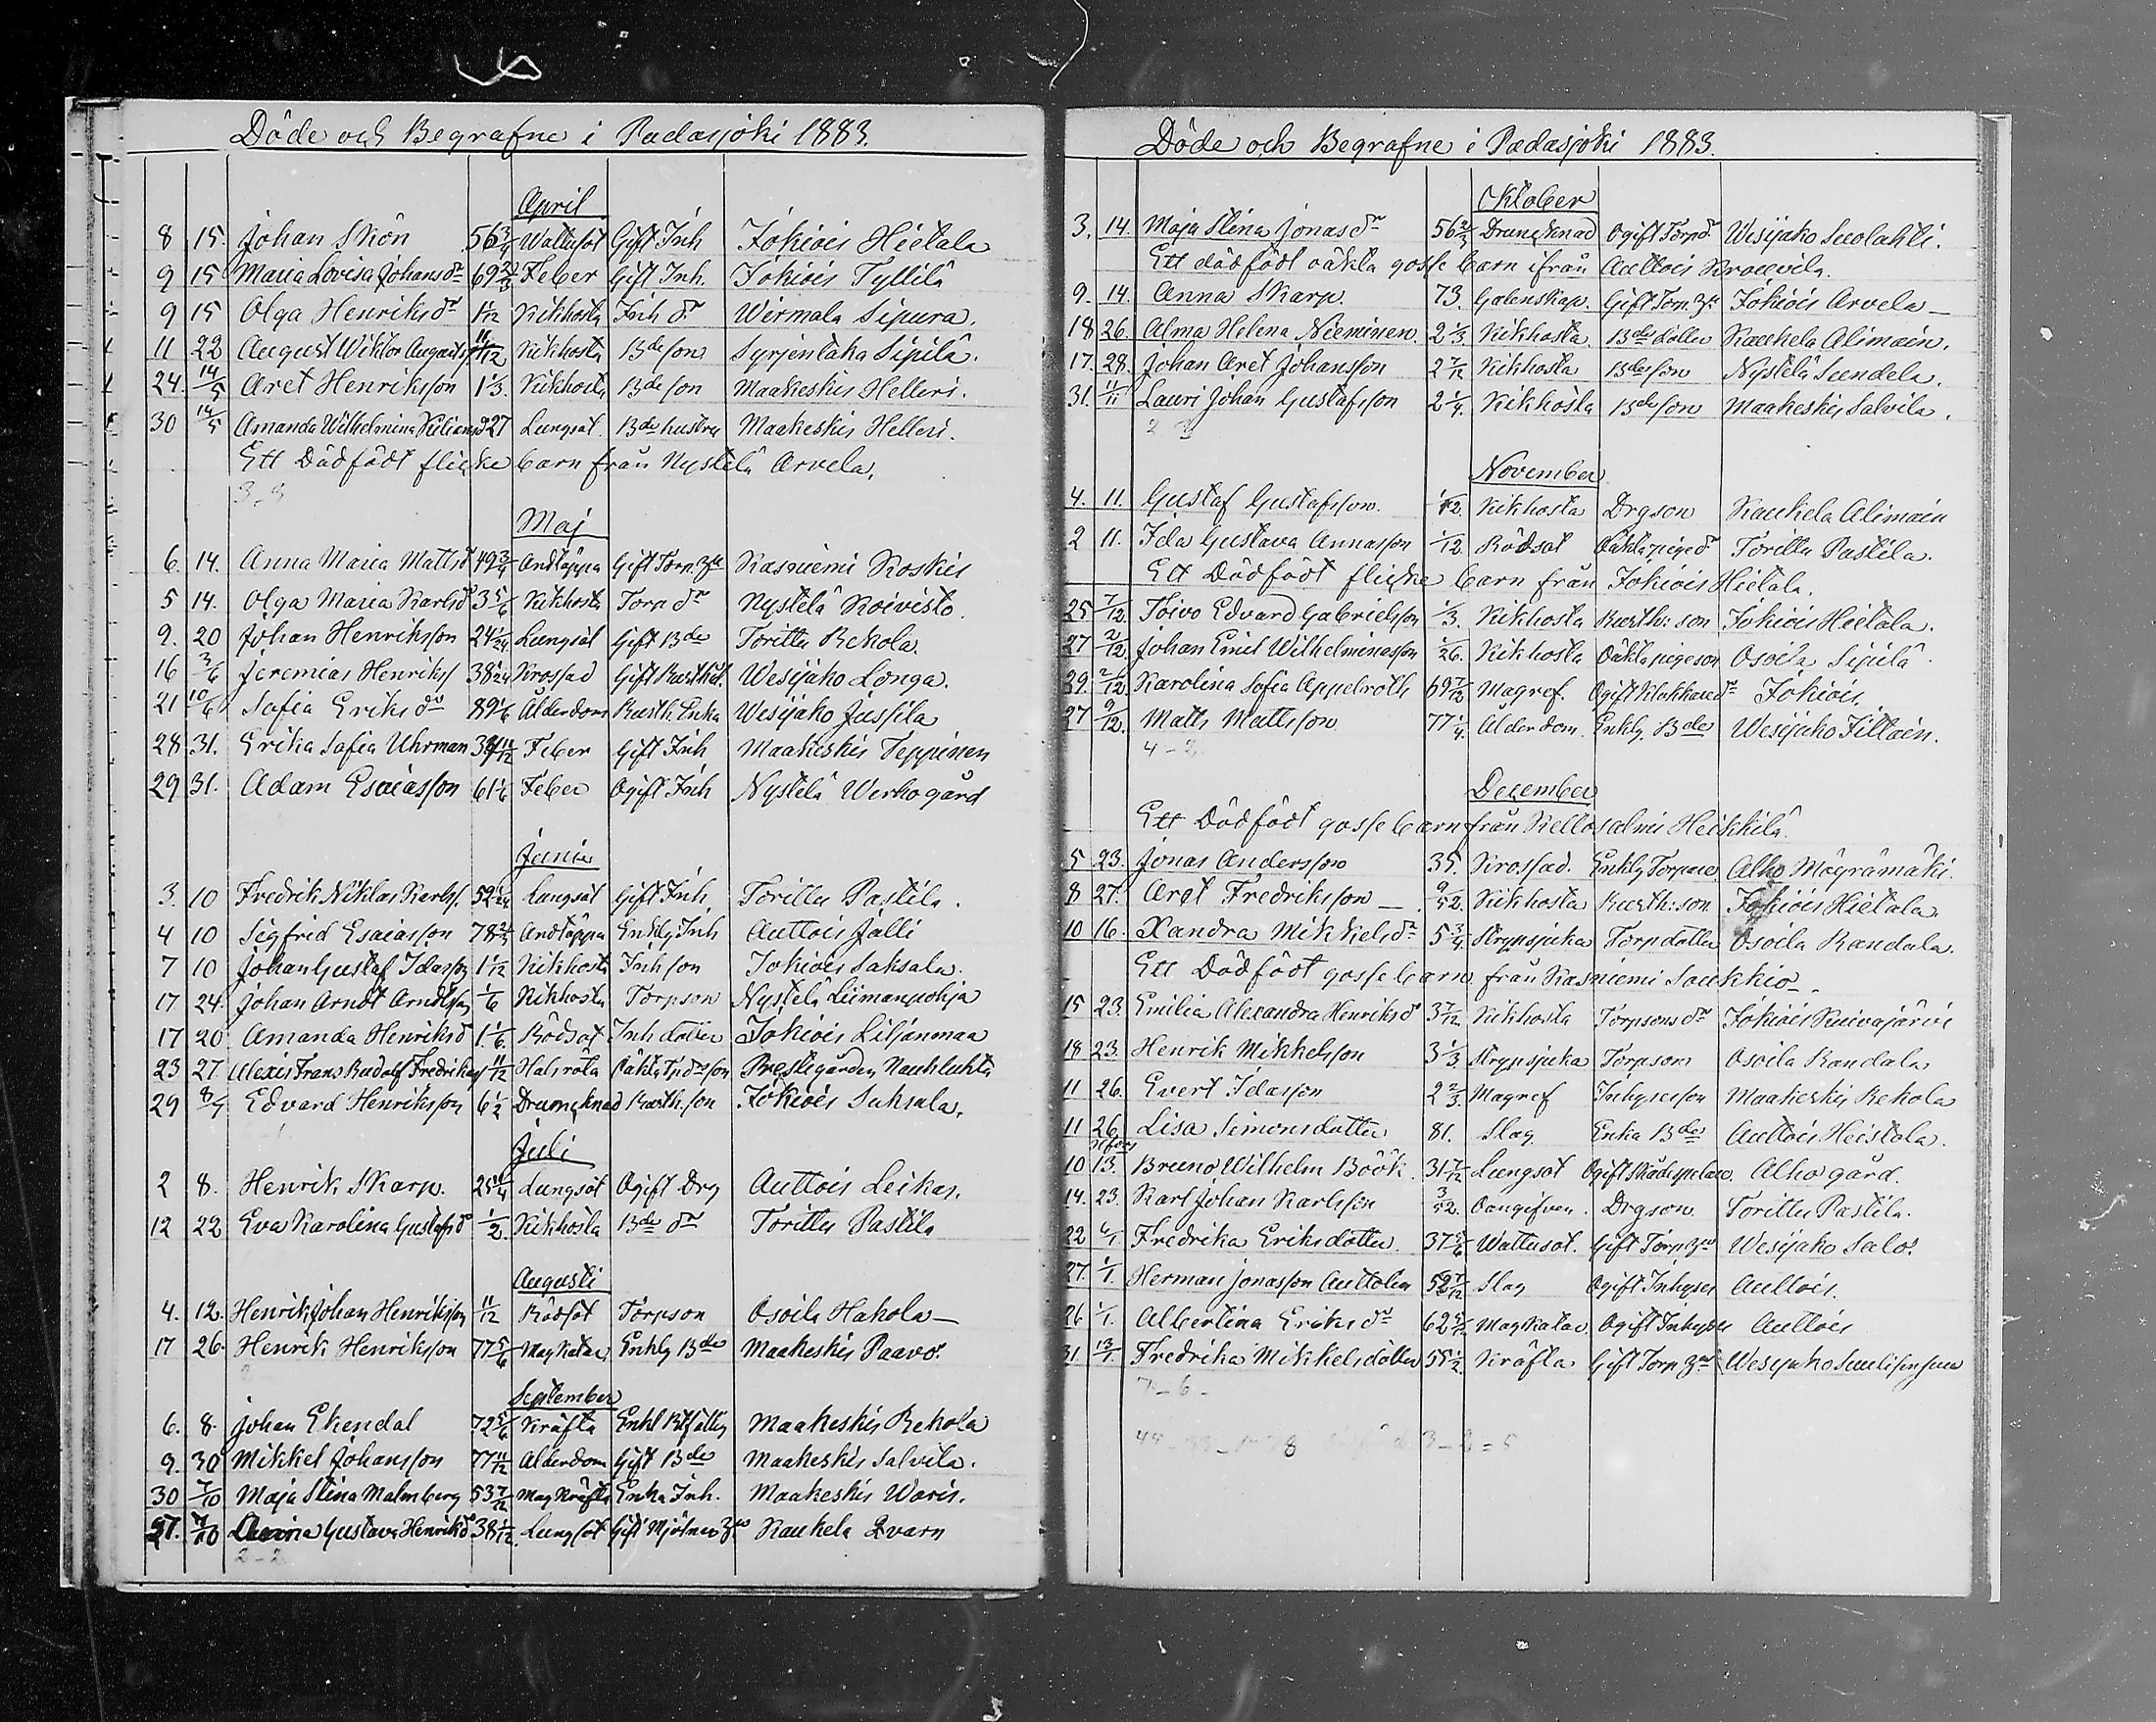 Döde och Begrafne i Padasjoki 1883.
April
8 15. Johan Skön 56 3/4 Wattusot Gift Inh Jokiois Hietala
9 15 Maria Lovisa Johansdr 69 2/3 Feber Gift Inh. Jokiois Tyllilä
9 15 Olga Henriksdr 1 1/12 Kikhosta Inh dr Wirmala Sipura.
11 22 August Wiktor Augusts 11/12 Kikhosta Bde son Syrjentaka Sipilä.
24. 14/5 Aret Henriksson 1 1/3. Kikhosta Bde son Maakeskis Helleri.
30 14/5 Amanda Wilhelmina Kiliansd 27 Lungsot. Bde hustru Maakeskis Helleri.
Ett Dödfödt flicke barn från Nystelä Arvela.
3-3
Maj
6. 14. Anna Maria Mattsd 49 3/4 Andtäppa Gift Torp. Kasniemi Koskis
5 14. Olga Maria Karlsd 3 5/6 Kikhosta Torp dr Nystelä Koivisto.
9. 20 Johan Henriksson 24 1/24 Lungsot Gift Bde Torittu Rekola
16 3/6 Jeremias Henriks 38 1/24 Krossad Gift Wesijako Longa.
21 10/6 Sofia Eriksdr 89 1/6 Ålderdom Enka Wesijako Jussila
28 31. Erika Sofia Uhrman 39 11/12 Feber Gift Inh Maakeskis Teppinen
29 31. Adam Esaiasson 61 1/6 Feber Ogift Inh Nystelä Werho gård
Juni
3. 10 Fredrik Niklas Karls. 52 1/24 Lungsot Gift Inh. Torittu Pastila.
4 10 Sigfrid Esaiasson 78 2/3 Andtäppa Enklg Inh Auttois Jälli
7 10 Johan Gustaf Idasson 1 1/12 Kikhosta Inh son Jokiois Saksala.
17 24. Johan Arndt Arndtsson 1/6 Kikhosta Torpson Nystelä Liimanpohja
17 20 Amanda Henriksd 1 1/6. Rödsot Inh dotter Jokiois Liljanmaa
23 27 Alexis Frans Rudolf Fredrikas 11/12 Halsröta Oäkta Prestegården Nauhluhta
29 8/7 Edvard Henriksson 6 1/2 Drunknad son Jokiois Suksula.
Juli
2 8. Henrik Skarp. 25 Lungsot Ogift Drg Auttois Leikas.
12 22 Eva Karolina Gustafsd 1/2. Kikhosta Bde dr Torittu Pastila
Augusti
4. 12. Henrik Johan Henriksson 11/12 Rödsot Torpson Osoila Hakola
17 26. Henrik Henriksson 77 5/6 Magkatar Enklg Bde Maakeskis Paavo.
September
6. 8. Johan Ekendal 72 5/6 Kräfta Enkl Maakeskis Rekola
9. 30 Mikkel Johansson 77 11/12 Ålderdom Gift Bde Maakeskis Salvila.
30 7/10 Maja Stina Malmberg 53 7/12 Mag Kräfta Enka Inh. Maakeskis Waris.
27. 7/10 Anna Gustava Henriksd 38 1/12. Lungsot Gift Mjölnar Kaukela Qvarn
2-2
Döde och Begrafne i Padasjoki 1883.
Oktober
3. 14. Maja Stina Jonasdr 56 2/3 Druncknad Ogift Torpd. Wesijako Suolahti.
Ett dödfödt oäkta gosse barn ifrån Auttois Krouvila.
9. 14. Anna Skarp. 73. Galenskap. Gift Torp. Jokiois Arvela
18 26. Alma Helena Nieminen. 2 1/3. Kikhosta. Bdes dotter Kaukela Alimäin.
17. 28. Johan Aret Johansson 2 7/12 Kikhosta Bdes son Nystelä Sundela.
31. 11/11 Lauri Johan Gustafsson 2 1/4. Kikhosta Bde son Maakeskis Salvila.
November
4. 11. Gustaf Gustafsson. 1/12. Kikhosta Drgson Kaukela Alimäin
2 11. Ida Gustava Annasson 1/12 Rödsot Oäkta pigedr Torittu Pastila.
Ett Dödfödt flicke barn från Jokiois Hietala.
25 7/12. Toivo Edvard Gabrielsson 1/3. Kikhosta son Jokiois Hietala.
27 2/12 Johan Emil Wilhelminasson 1/26. Kikhosta Oäkta pigeson Osoila Sipilä
29. 2/12 Karolina Sofia Appelroth 69 7/12 Magref. Ogift Klokkaredr Jokiois.
27 9/12. Matts Mattsson 77 1/4. Ålderdom. Enklg. Bde Wesijako Jillain.
4-2
December
Ett Dödfödt gosse barn från Kellosalmi Heikkilä.
5 23. Jonas Andersson 35. Krossad. Enklg Torpare Alho Mägrämäki.
8 27. Aret Fredriksson 9/52. Kikhosta son. Jokiois Hietala.
10 16. Xandra Mikkelsdr 5 3/4. Strypsjuka Torpdotter Osoila Randala.
Ett Dödfödt gosse barn från Kasniemi Soukkio
15 23. Emilia Alexandra Henriksdr 3 7/12 Kikhosta Torpsonsdr Jokiois Kuivajärvi
18 23. Henrik Mikkelsson 3 1/3 Strypsjuka Torpson Osoila Randala
11 26. Evert Idasson 2 2/3. Magref Inhyseson Maakeskis Rekola
11 26. Lisa Simonsdotter 81. Slag Enka Bde Auttois Heistola.
H:fors
10 13. Bruno Wilhelm Böök. 31 7/12 Lungsot Ogift Skådespelare. Alho gård.
14. 23. Karl Johan Karlsson 3/52. Oangifven. Drgson. Torittu Pastila.
22 6/1 Fredrika Eriksdotter 37 5/6 Wattusot. Gift Torp Wesijako Salo.
27. 1/1. Herman Jonasson Auttolin 52 7/12 Slag Ogift Inhyses Auttois.
26 1/1. Albertina Eriksdr 62 Magkatar Ogift Inhyses Auttois
31 13/1. Fredrika Mikkelsdotter 55 1/2. Kräfta Gift Torp
7-6-